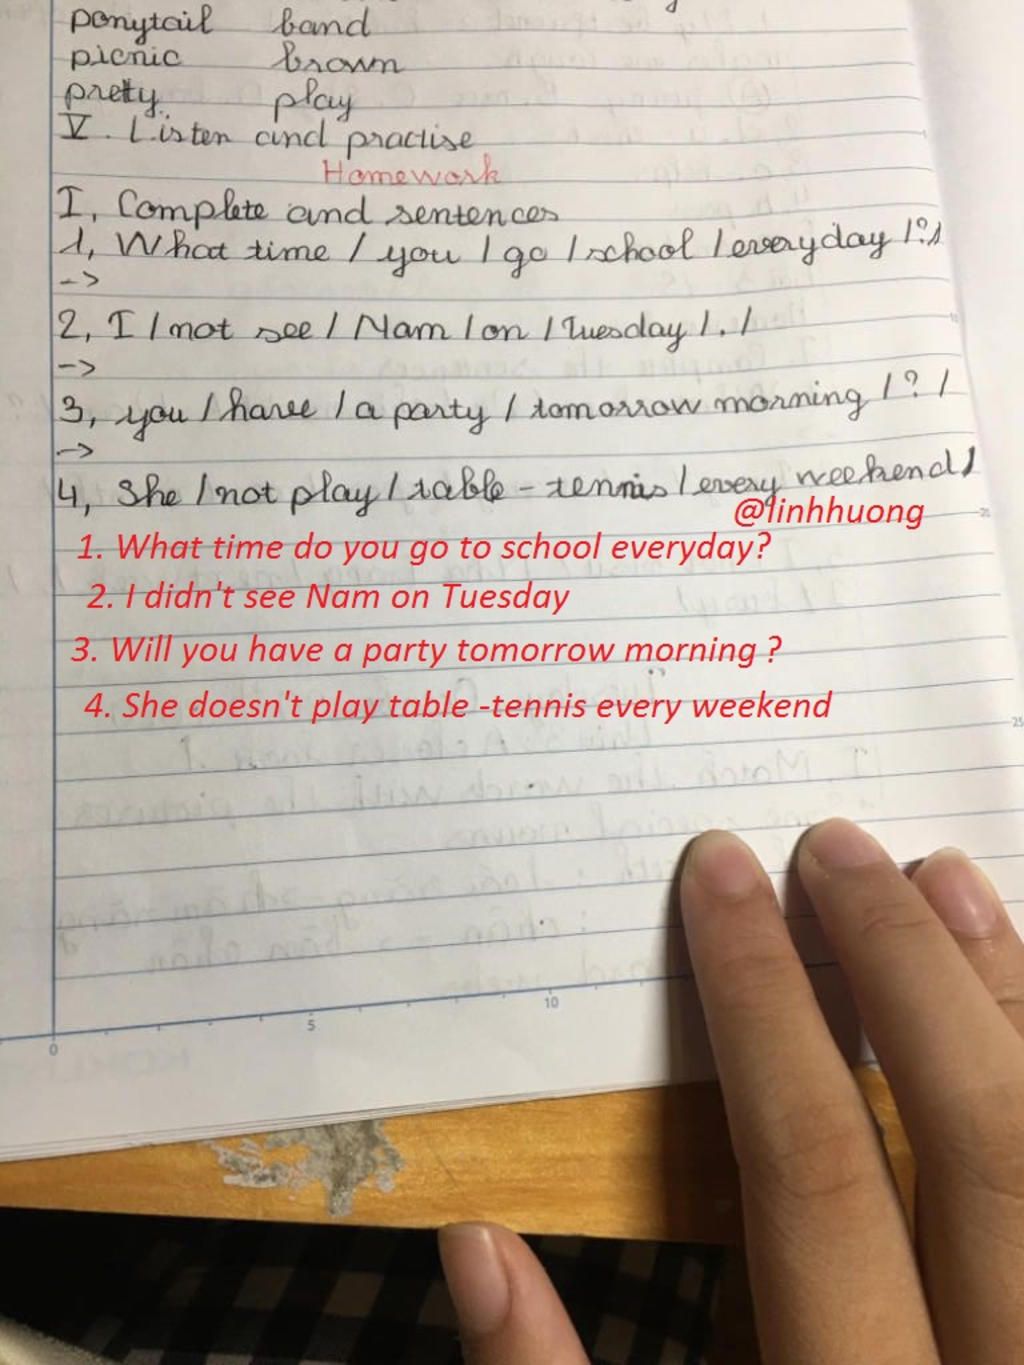 ponytail band
picnic brown
pretty play
V. Listen and practise
Homework
I, Complete and sentences
1, What time / you / go / school / everyday / ? /
->
2, I / not see / Nam / on / Tuesday / . /
->
3, you / have / a party / tomorrow morning / ? /
->
4, She / not play / table - tennis / every weekend /
@linhhuong
1. What time do you go to school everyday?
2. I didn't see Nam on Tuesday
3. Will you have a party tomorrow morning ?
4. She doesn't play table -tennis every weekend
25
0 5 10